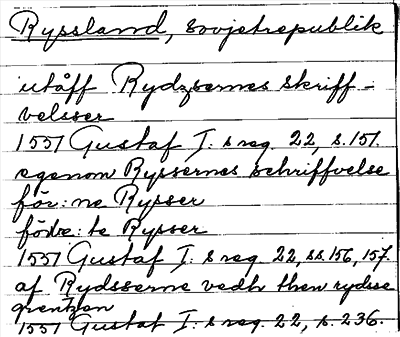 Ryssland, Sovjetrepublik
utåff Rydzsernes skriff-
velsser
1551 Gustaf I: s reg. 22, s. 151.
egenom Ryssernes schriffvelse
för: ne Rysser
förbe: te Rysser
1551 Gustaf I: s reg. 22, ss. 156, 157.
af Rydsserne vedh then rydsse
grentzen
1551 Gustaf I: s reg. 22, s. 236.